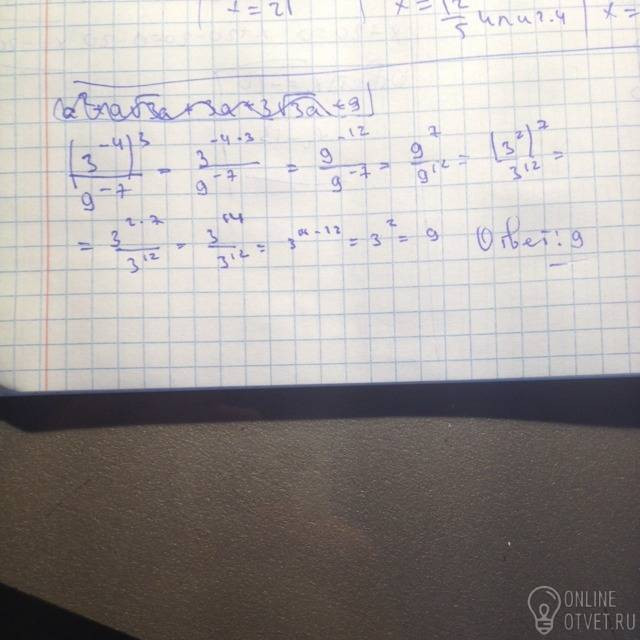 x = 21 | x = 12/5 или 2.4 | x =
(3^-4)^3 / 9^-7 = 3^-4·3 / 9^-7 = 9^-12 / 9^-7 = 9^7 / 9^12 = (3^2)^7 / 3^12 =
= 3^2·7 / 3^12 = 3^14 / 3^12 = 3^14-12 = 3^2 = 9 Ответ: 9
ONLINE
OTVET.RU